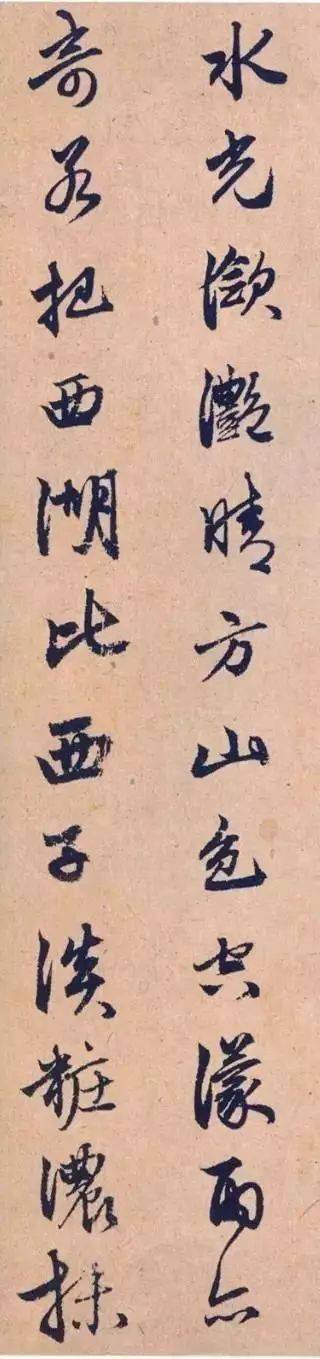 水光潋灩晴方山色空濛雨亦
奇若把西湖比西子淡粧濃抹